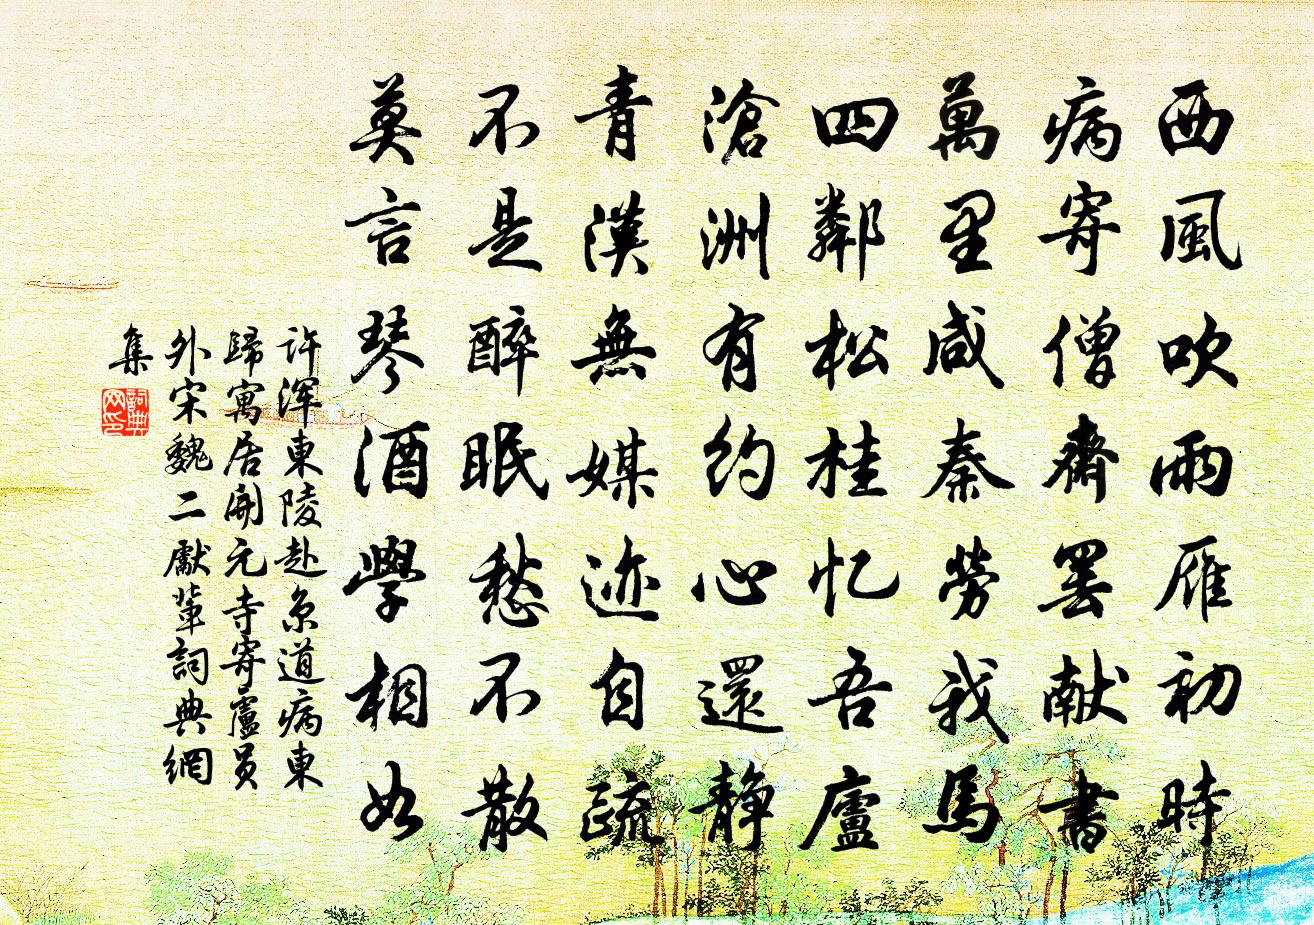 西風吹雨雁初時
病寄僧齋罢献書
萬里咸秦勞我馬
四鄰松桂忆吾廬
滄洲有約心還静
青漢無媒迹自疏
不是醉眠愁不散
莫言琴酒學相如
许渾東陵赴京道病東
歸寓居開元寺寄盧员
外宋魏二獻軰詞典網
集
詞典
网印